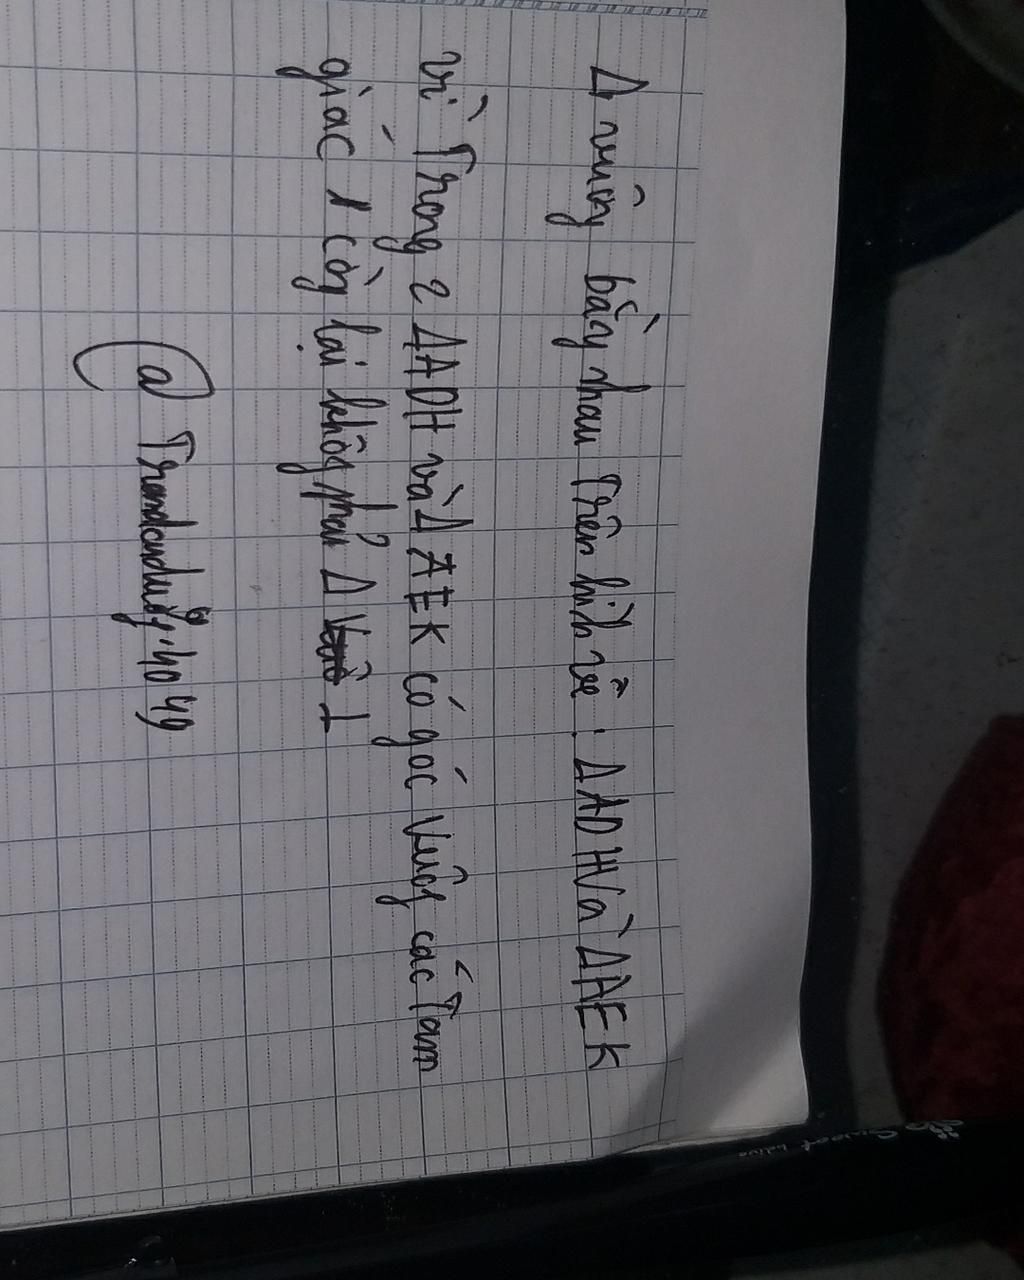 Δ vuông bằng nhau Trên hình vẽ : ΔADH Và ΔAEK
vì Trong 2 ΔADH và Δ AEK có góc vuông các Tam
giác 1 còn lại không phải Δ ⊥
@ Trandanduong.4049
Sweet